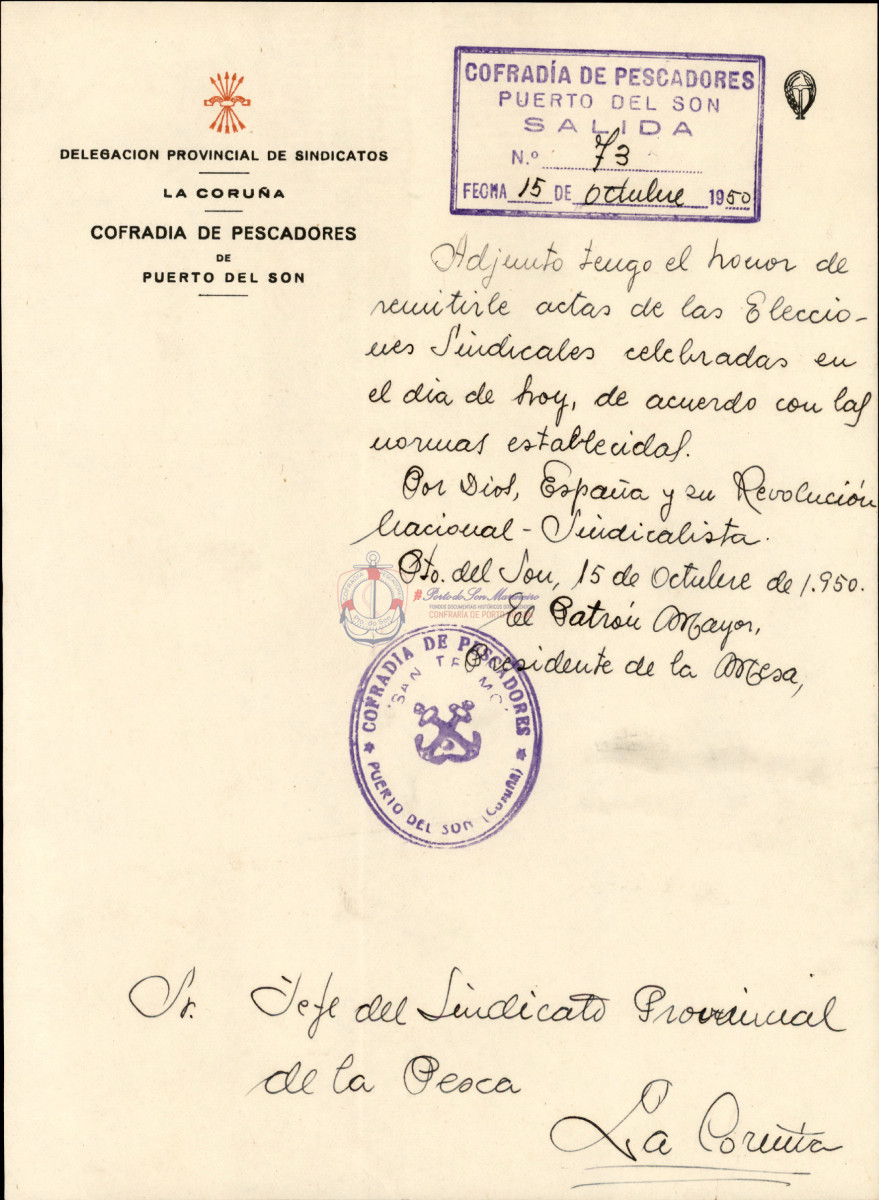 DELEGACION PROVINCIAL DE SINDICATOS
LA CORUÑA
COFRADIA DE PESCADORES
DE
PUERTO DEL SON
COFRADÍA DE PESCADORES
PUERTO DEL SON
SALIDA
N.º 73
FECHA 15 DE Octubre 1950
Adjunto tengo el honor de
remitirle actas de las Eleccio-
nes Sindicales celebradas en
el día de hoy, de acuerdo con las
normas establecidas.
Por Dios, España y su Revolución
Nacional-Sindicalista.
Pto. del Son, 15 de Octubre de 1.950.
El Patrón Mayor,
Presidente de la Mesa,
#Porto do Son Mariñeiro
FONDOS DOCUMENTAIS HISTÓRICOS DA
CONFRARÍA DE PORTO
COFRADIA DE PESCADORES
"SAN TELMO"
PUERTO DEL SON (CORUÑA)
Sr. Jefe del Sindicato Provincial
de la Pesca
La Coruña